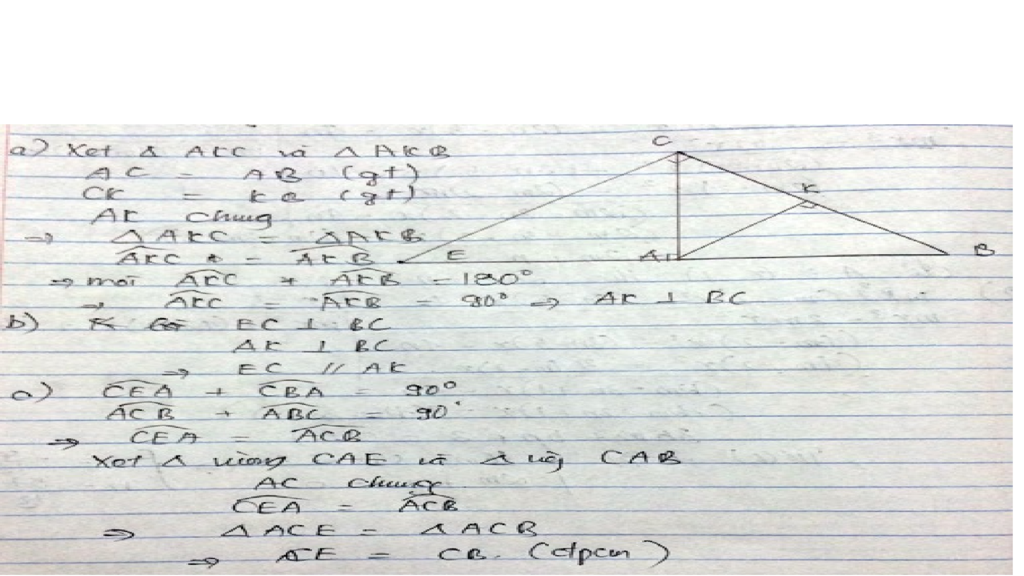 a) Xet Δ AKC và Δ AKB
AC = AB (gt)
CK = KB (gt)
AK chung
⇒ Δ AKC = Δ AKB
AKC = AKB
⇒ mài AKC + AKB = 180°
⇒ AKC = AKB = 90° ⇒ AK ⊥ BC
b) EC ⊥ BC
AK ⊥ BC
⇒ EC // AK
c) CEA + CBA = 90°
ACB + ABC = 90°
⇒ CEA = ACB
Xet Δ vuông CAE và Δ vuông CAB
AC chung
CEA = ACB
⇒ Δ ACE = Δ ACB
⇒ CE = CB. (đpcm)
C
K
E
A
1
B